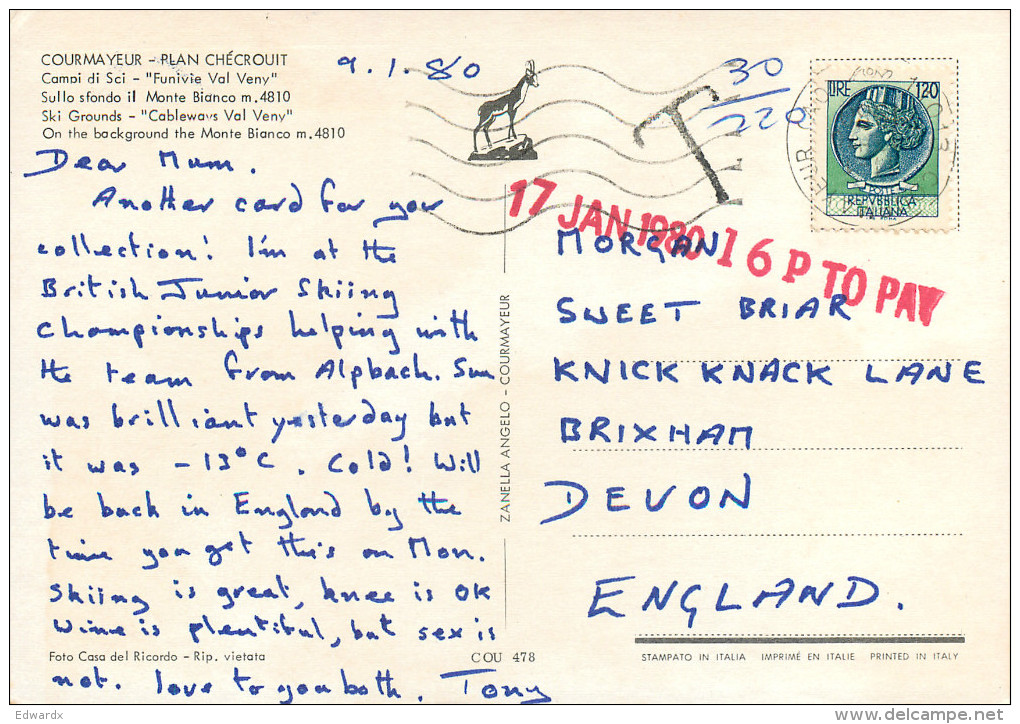 COURMAYEUR - PLAN CHÉCROUIT
Campi di Sci - "Funivie Val Veny"
Sullo sfondo il Monte Bianco m.4810
Ski Grounds - "Cableways Val Veny"
On the background the Monte Bianco m.4810
9.1.80
Dear Mum.
Another card for your
collection! I'm at the
British Junior Skiing
Championships helping with
the team from Alpbach. Sun
was brilliant yesterday but
it was -13°C. Cold! Will
be back in England by the
time you get this on Mon.
Skiing is great, knee is OK
wine is plentiful, but sex is
not. love to you both. Tony
Foto Casa del Ricordo - Rip. vietata
COU 478
ZANELLA ANGELO - COURMAYEUR
T
30
220
LIRE 120
ROMA
REPVBBLICA
ITALIANA
17 JAN 1980
16P TO PAY
MORGAN
SWEET BRIAR
KNICK KNACK LANE
BRIXHAM
DEVON
ENGLAND.
STAMPATO IN ITALIA IMPRIMÉ EN ITALIE PRINTED IN ITALY
Edwardx
www.delcampe.net